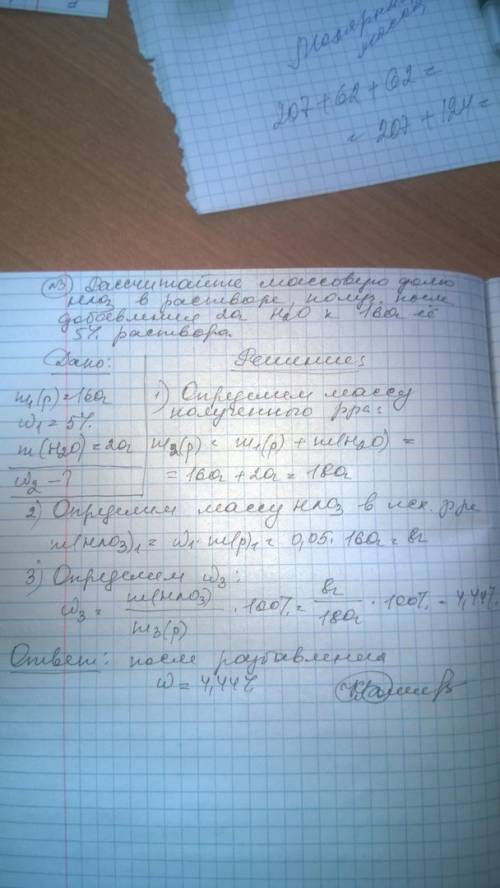 Молярные
массы
207+62+62=
= 207+124=
№3) Рассчитайте массовую долю
HNO3 в растворе, получ. после
добавления 20г H2O к 160г её
5% раствора.
Дано:
m1(р)=160г
ω1=5%
m(H2O)=20г
ω2-?
Решение:
1) Определяем массу
полученного рра:
m2(р)= m1(р)+m(H2O) =
= 160г+20г=180г
2) Определим массу HNO3 в исх. рре
m(HNO3)1 = ω1·m(р)1 = 0,05·160г=8г
3) Определяем ω3:
ω3 = m(HNO3)/m3(р) ·100% = 8г/180г ·100% = 4,44%
Ответ: после разбавления
ω=4,44%